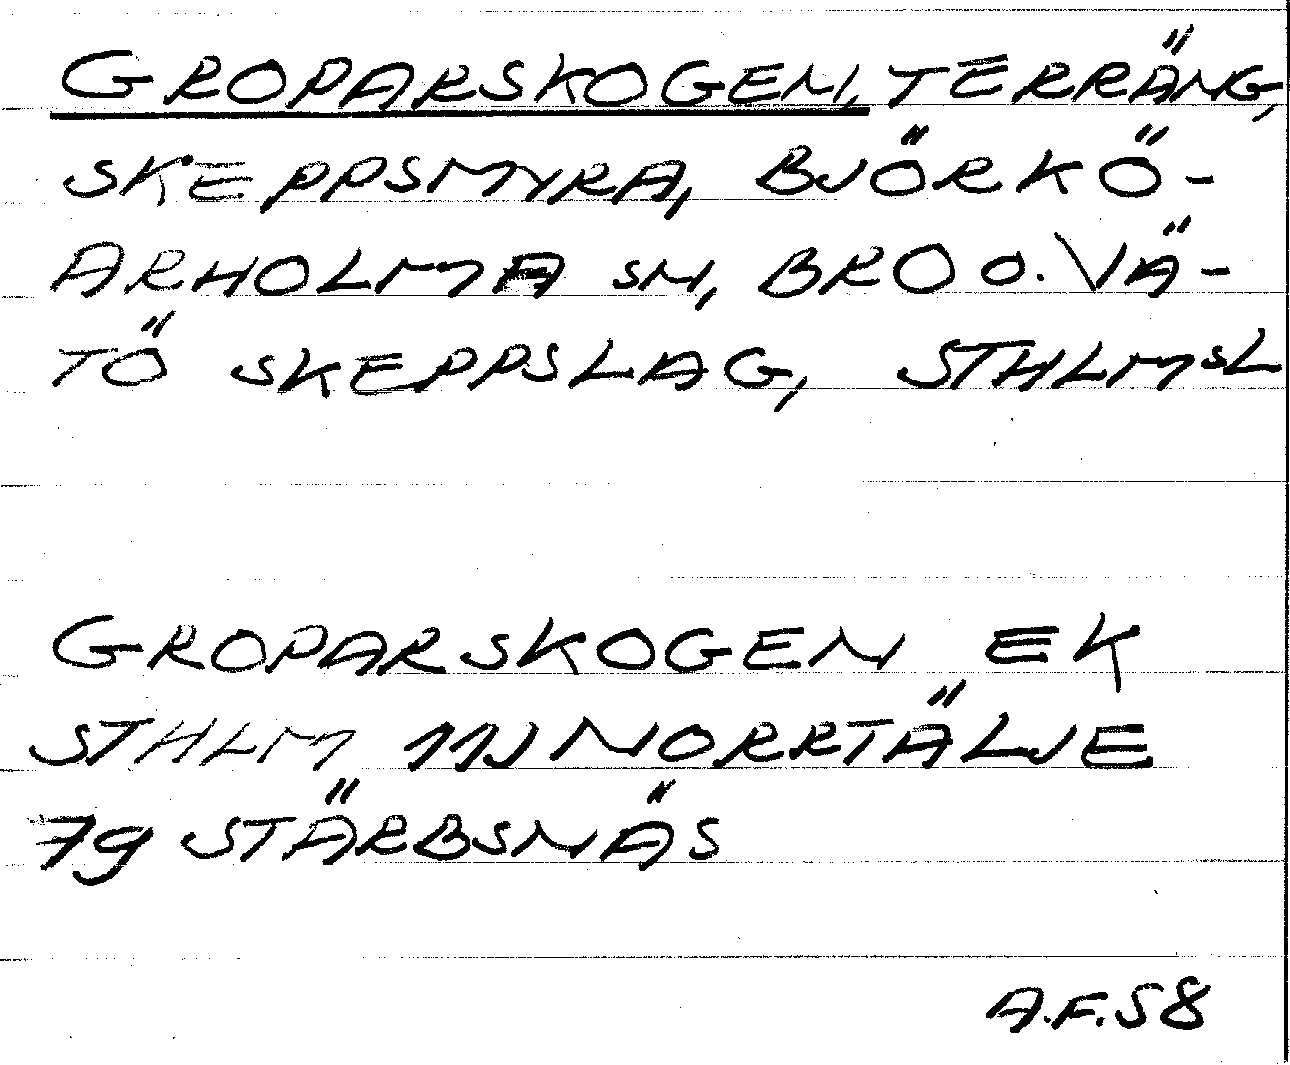 GROPARSKOGEN, TERRÄNG,
SKEPPSMYRA, BJÖRKÖ-
ARHOLMA SN, BRO O. VÄ-
TÖ SKEPPSLAG, STHLMSL
GROPARSKOGEN EK
STHLM 11J NORRTÄLJE
7g STÄRBSNÄS
A.F. 58